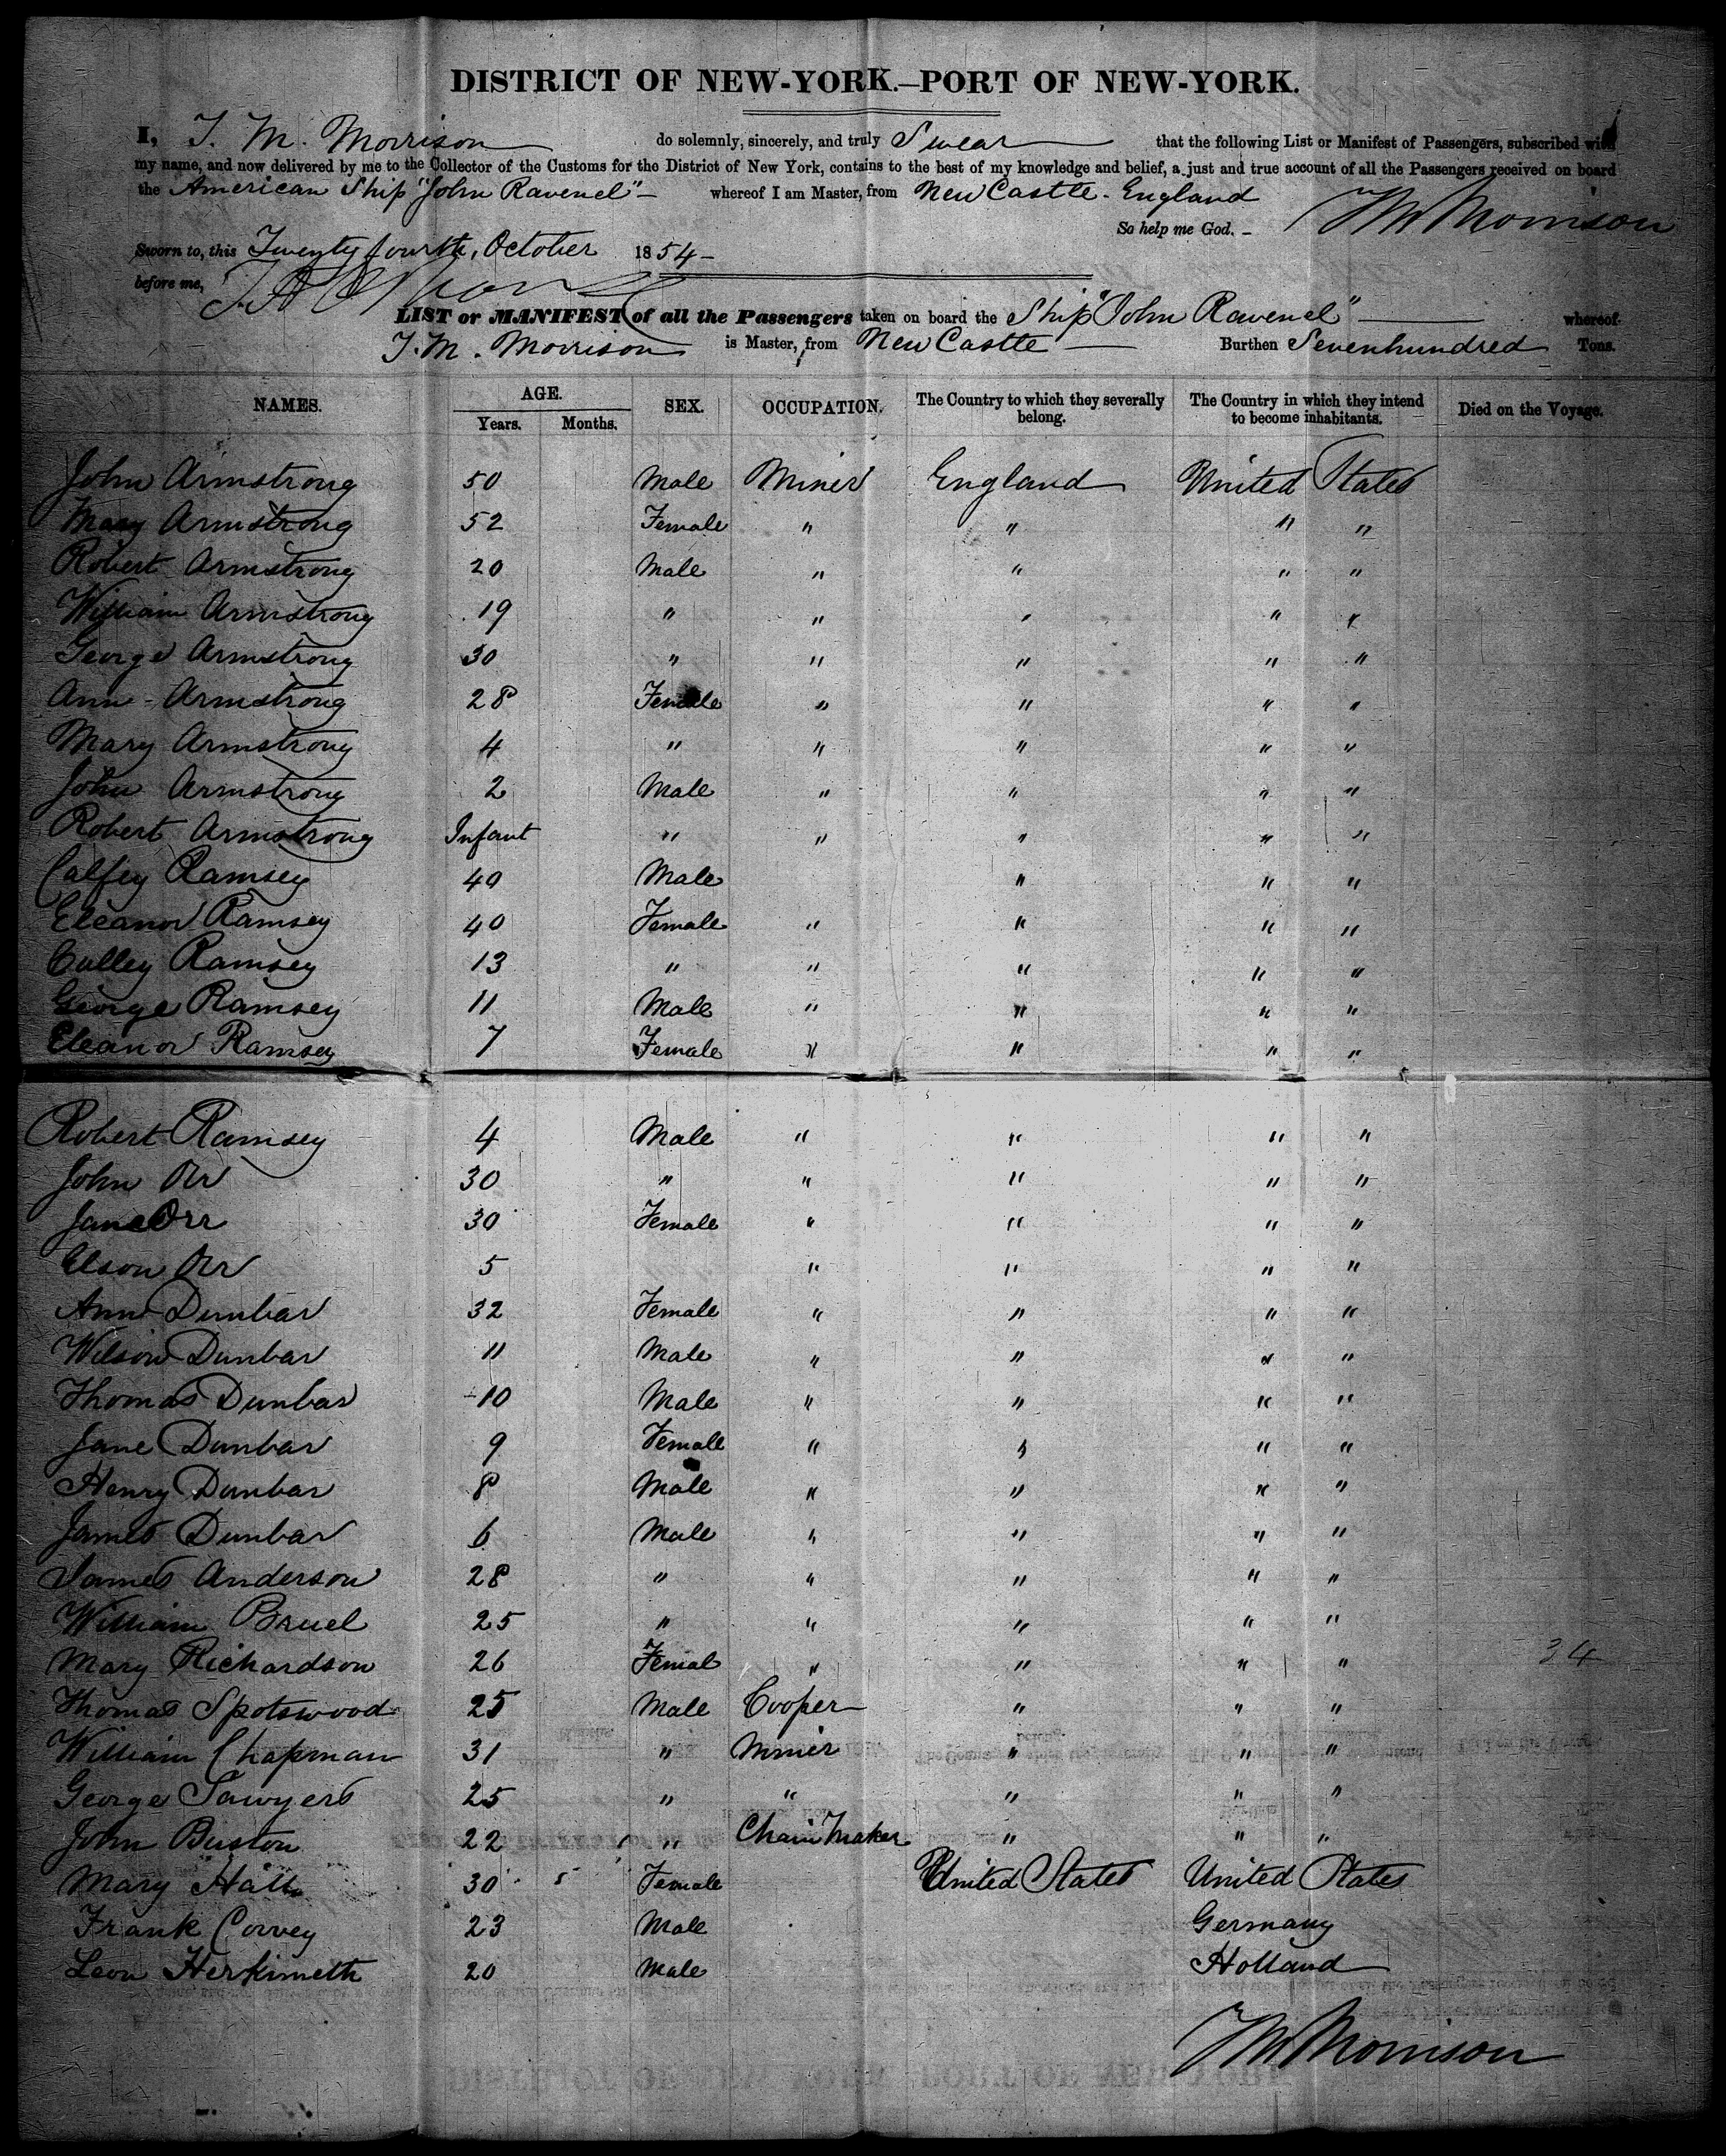 DISTRICT OF NEW-YORK.—PORT OF NEW-YORK.
I, T. M. Morrison do solemnly, sincerely, and truly Swear that the following List or Manifest of Passengers, subscribed with
my name, and now delivered by me to the Collector of the Customs for the District of New York, contains to the best of my knowledge and belief, a just and true account of all the Passengers received on board
the American Ship "John Ravenel" — whereof I am Master, from New Castle - England
So help me God. - T M Morrison
Sworn to, this Twenty fourth, October 1854 -
before me,
LIST or MANIFEST of all the Passengers taken on board the Ship "John Ravenel" whereof
T. M. Morrison is Master, from New Castle Burthen Sevenhundred Tons.
NAMES. AGE. SEX. OCCUPATION. The Country to which they severally belong. The Country in which they intend to become inhabitants. Died on the Voyage.
Years. Months.
John Armstrong 50 Male Miner England United States
Mary Armstrong 52 Female " " " "
Robert Armstrong 20 Male " " " "
William Armstrong 19 " " " " "
George Armstrong 30 " " " " "
Ann - Armstrong 28 Female " " " "
Mary Armstrong 4 " " " " "
John Armstrong 2 Male " " " "
Robert Armstrong Infant " " " " "
Ramsey 40 Male " " "
Eleanor Ramsey 40 Female " " " "
Ramsey 13 " " " " "
George Ramsey 11 Male " " " "
Eleanor Ramsey 7 Female " " " "
Robert Ramsey 4 Male " " " "
John Orr 30 " " " " "
Jane Orr 30 Female " " " "
Elson Orr 5 " " " "
Ann Dunbar 32 Female " " " "
Wilson Dunbar 11 Male " " " "
Thomas Dunbar 10 Male " " " "
Jane Dunbar 9 Female " " " "
Henry Dunbar 8 Male " " " "
James Dunbar 6 Male " " " "
James Anderson 28 " " " " "
William Bruel 25 " " " " "
Mary Richardson 26 Femal " " " " 34
Thomas Spotswood 25 Male Cooper " " "
William Chapman 31 " Minier " " "
George Sawyers 25 " " " " "
John Buston 22 " Chain Maker " " "
Mary Hall 30 5 Female United States United States
Frank Corvey 23 Male Germany
Leon Herkimeth 20 Male Holland
T M Morrison